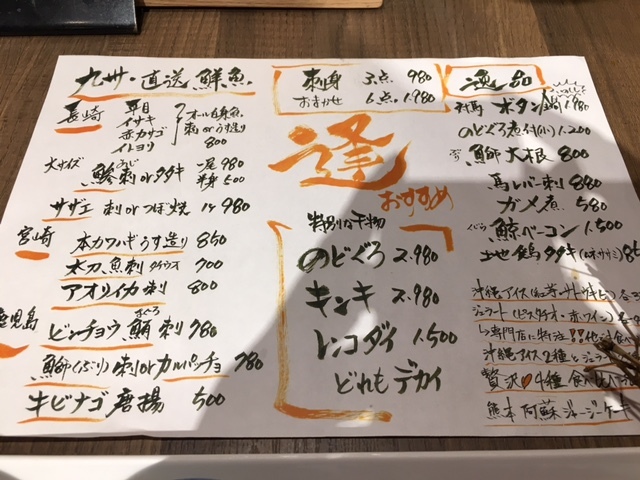 九州・直送 鮮魚
長崎
平目
イサキ
赤カサゴ
イトヨリ
オール白身魚
刺 or うす造り
800
大サイズ 鯵刺 or タタキ 一尾 980
あじ
半身 500
サザエ 刺 or つぼ焼 1ケ 980
宮崎
本カワハギうす造り 850
太刀魚刺 700
アオリイカ刺 800
鹿児島
まぐろ
ビンチョウ鮪刺 780
鰤(ぶり)刺 or カルパッチョ 780
牛ビナゴ唐揚 500
刺身 3点 980
おまかせ 6点 1.980
逢
おすすめ
特別な干物
のどぐろ 2.980
キンキ 2.980
レンコダイ 1.500
どれもデカイ
逸品
対馬 ボタン鍋 1.980
のどぐろ煮付(小) 1.200
ぶり
鰤大根 800
馬レバー刺 880
ガメ煮 580
くじら
鯨ベーコン 1.500
土地鶏タタキ(ムネ・ササミ)
沖縄アイス
ジェラート(ピスタチオ・赤ワイン)
専門店に特注!!
沖縄アイス2種とジェラート
贅沢♥4種食べ
熊本 阿蘇ジャージーケーキ